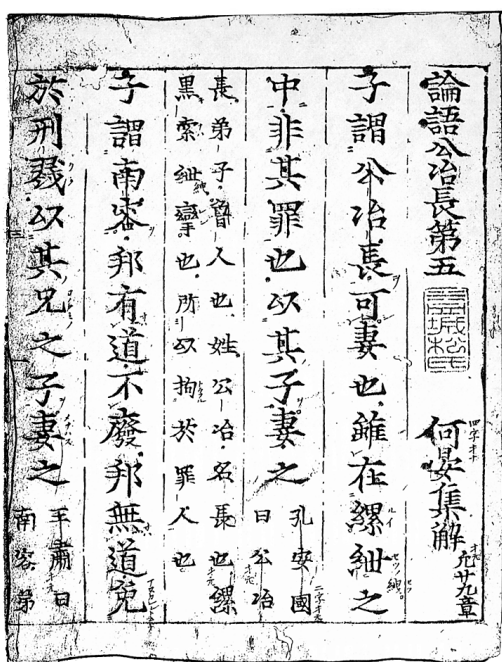 論語公冶長第五 何晏集解 凡廿九章
子謂公冶長可妻也雖在縲紲之
中非其罪也以其子妻之 孔安國曰公冶
長弟子魯人也姓公冶名長也縲
黒索紲攣也所以拘於罪人也
子謂南容邦有道不廢邦無道免
於刑戮以其兄之子妻之 王肅曰南容弟